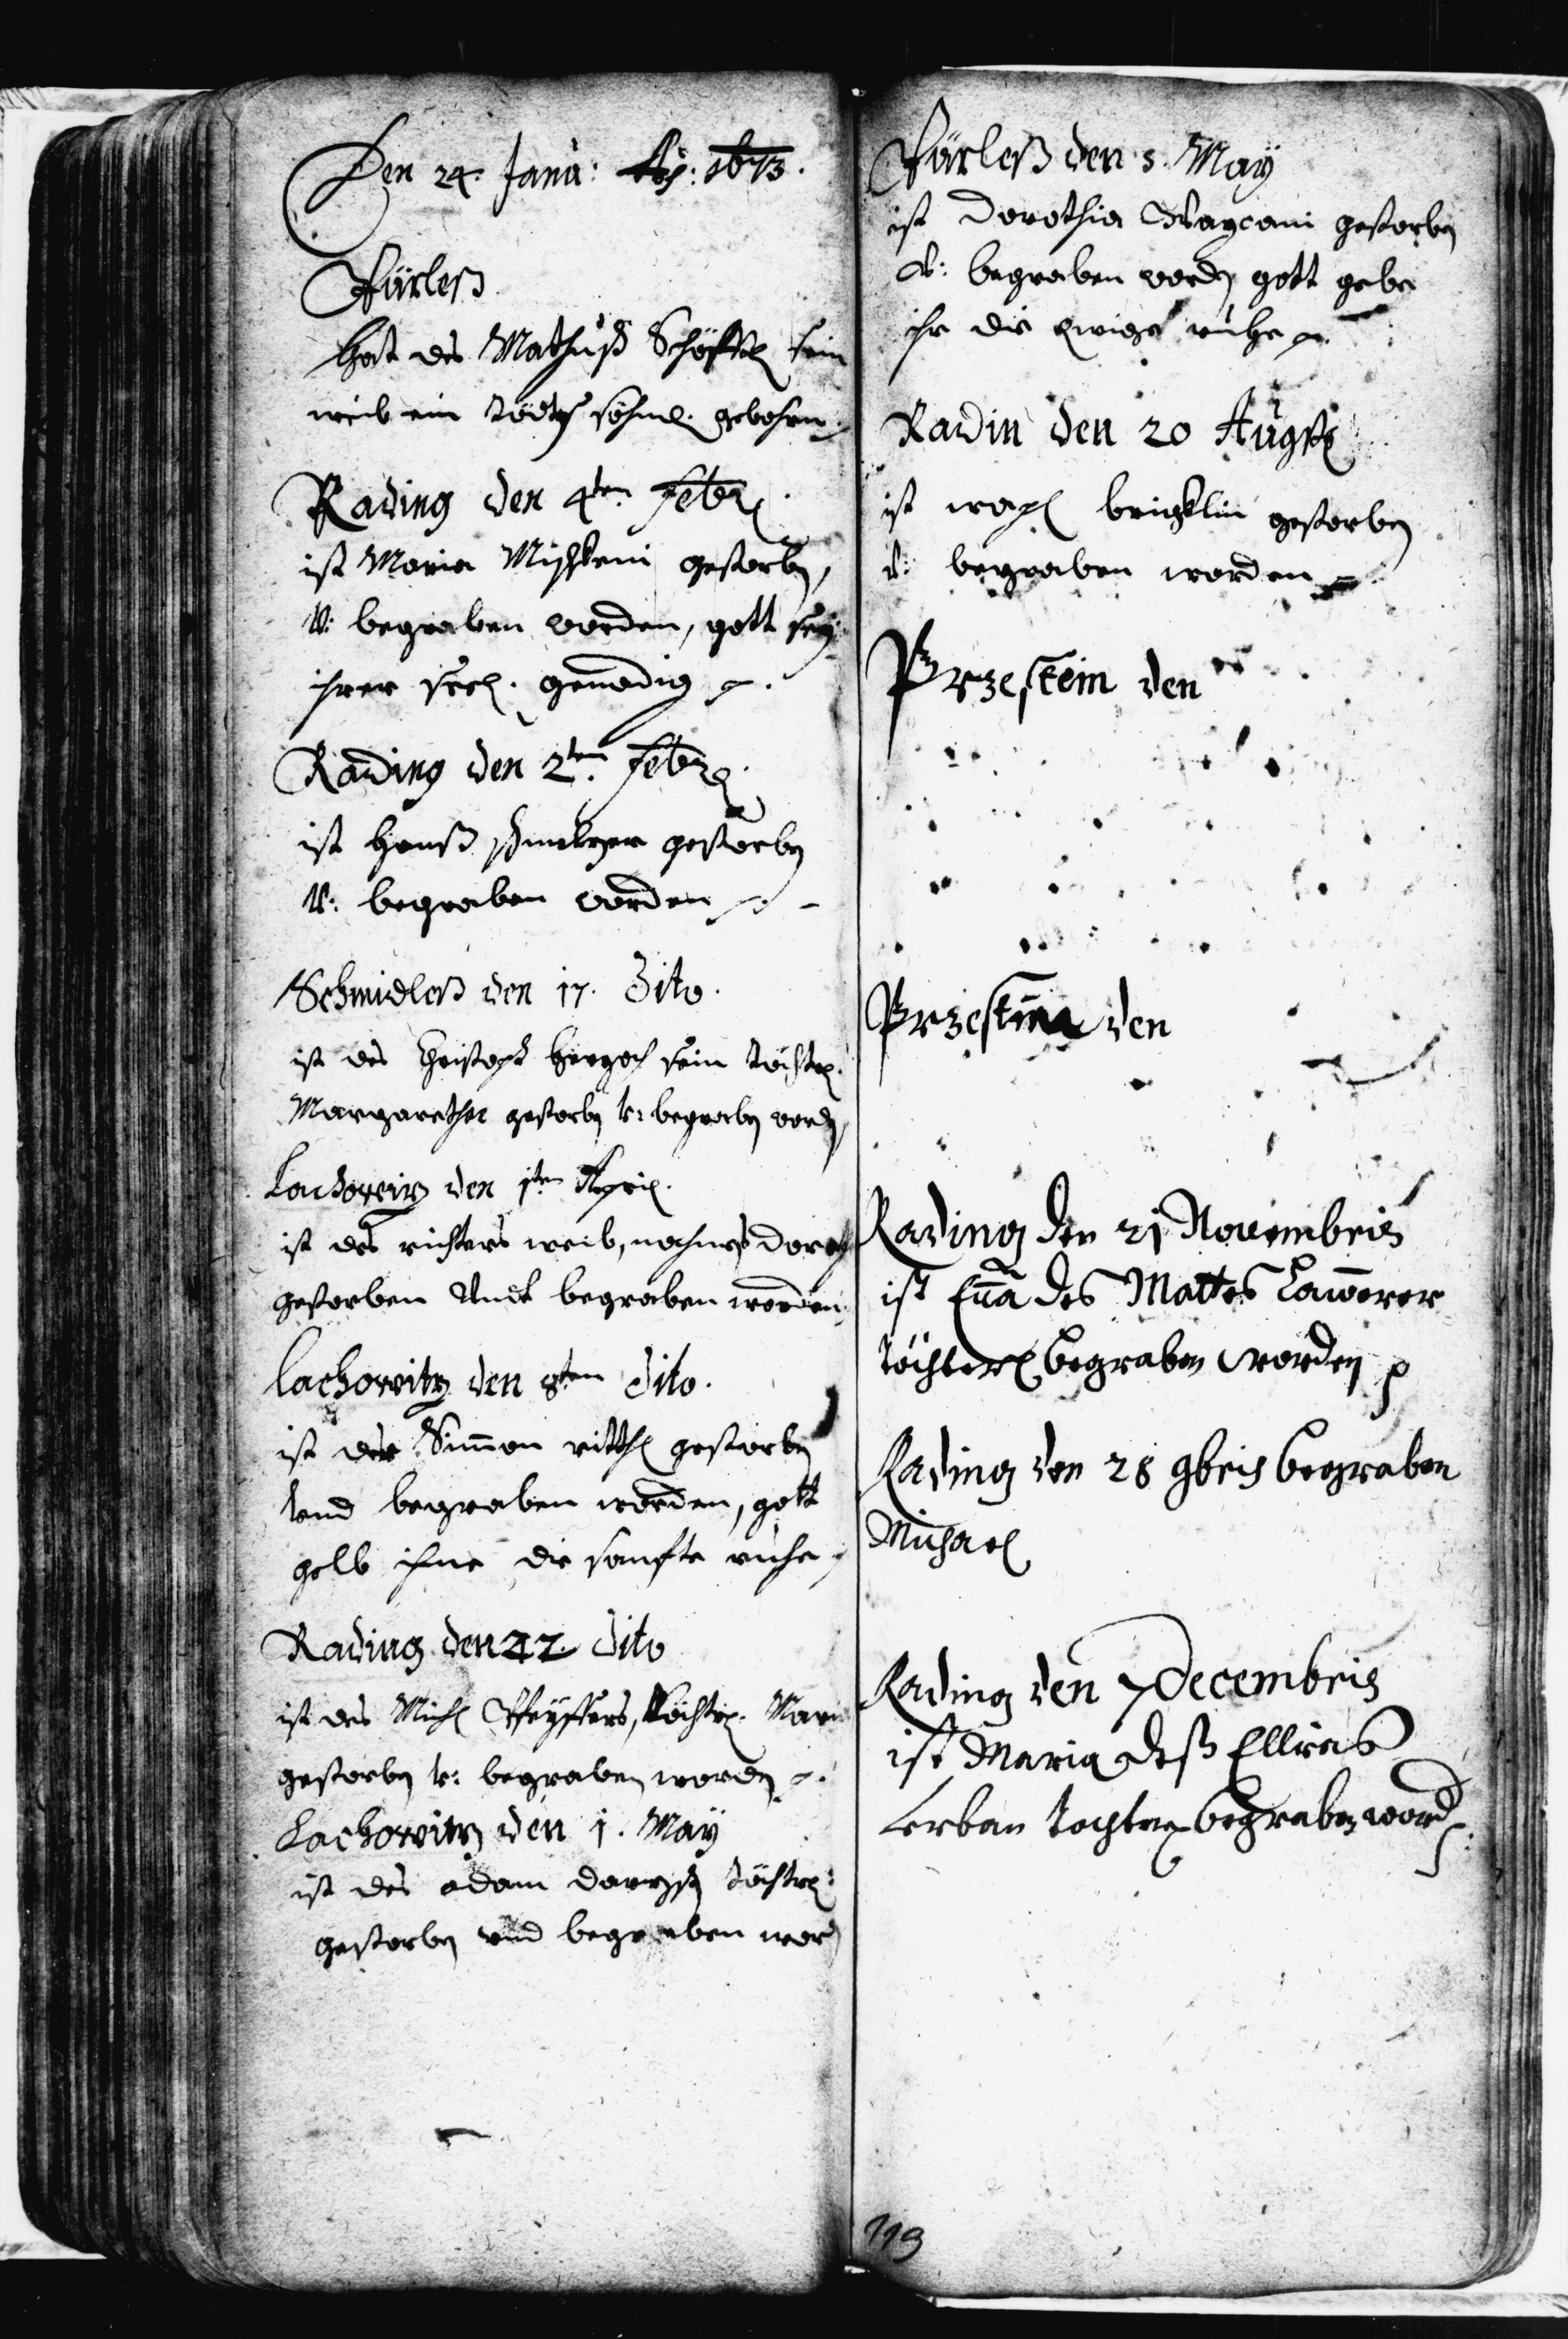 Den 24. Janu: Ao: 1673.
Fürleß
hat des Mathuß Schöffl sein
weib ein todtes söhnl. gebohren
Rading den 4ten Febr.
ist Maria gestorbn,
v: begraben worden, gott sey
ihrer seel. genadig
Rading den 2ten Febr.
ist Hanß gestorbn
v: begraben worden
Schmidleß den 17. Dito.
ist des Christoph Herzoch sein töchterl.
Margaretha gestorbn v: begrabn wordn
Lachowitz den 1ten April.
ist des richters weib, nahmens Doroth
gestorben Undt begraben worden
Lachowitz den 8ten Dito.
ist der Simon rittl gestorbn
vnd begraben worden, gott
geb ihme die sanfte ruhe
Rading den 22 Dito
ist des Michl Pfeyffers, töchterl. Maria
gestorbn v: begraben wordn
Lachowitz den 1. May
ist des adam töchterl:
gestorbn vnd begraben wor
Fürleß den 5. May
ist Dorothia gestorbn
v: begraben wordn gott gebe
ihr die Ewige ruhe
Radin den 20 Augst
ist gestorbn
v: begraben worden
Przestein den
Przestein den
Rading den 21 Nouembris
ist Eua des Mattes
töchterl begraben worden
Rading den 28 9bris begraben
Michael
Rading den 7 Decembris
ist Maria deß Ellias
tochter begraben word
119